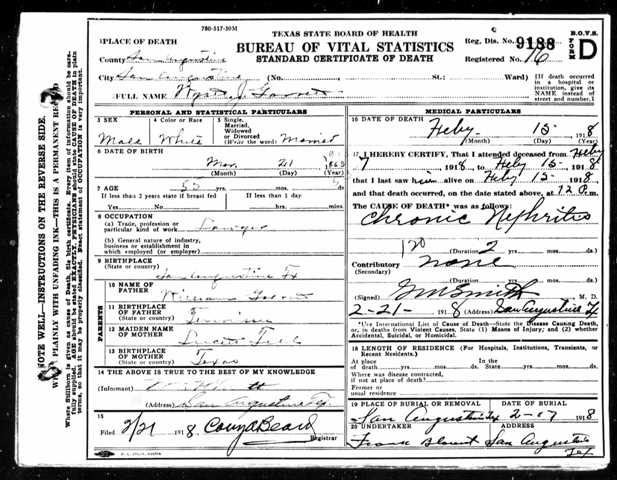 780-517-305M
TEXAS STATE BOARD OF HEALTH
BUREAU OF VITAL STATISTICS
STANDARD CERTIFICATE OF DEATH
Reg. Dis. No. 9138
Registered No. 16
B.O.V.S. FORM D
1 PLACE OF DEATH
County San Augustine
City San Augustine (No. St.; Ward)
[If death occurred in a hospital or institution, give its NAME instead of street and number.]
FULL NAME
PERSONAL AND STATISTICAL PARTICULARS
3 SEX 4 Color or Race 5 Single, Married, Widowed or Divorced (Write the word)
Male White Married
6 DATE OF BIRTH
Mar 21
(Month) (Day) (Year)
7 AGE 55 yrs. mos. ds.
If less than 2 years state if breast fed If less than 1 day
Yes No hrs. min.
8 OCCUPATION
(a) Trade, profession or particular kind of work Lawyer
(b) General nature of industry, business or establishment in which employed (or employer)
9 BIRTHPLACE
(State or country) San Augustine Tx
PARENTS
10 NAME OF FATHER William
11 BIRTHPLACE OF FATHER
(State or country)
12 MAIDEN NAME OF MOTHER
13 BIRTHPLACE OF MOTHER
(State or country) Texas
14 THE ABOVE IS TRUE TO THE BEST OF MY KNOWLEDGE
(Informant)
(Address) San Augustine Tx
15
Filed 2/21 1918 Beard
Registrar
MEDICAL PARTICULARS
16 DATE OF DEATH
Feby 15 1918
(Month) (Day) (Year)
17 I HEREBY CERTIFY, That I attended deceased from Feby
7 1918 to Feby 15 1918
that I last saw him alive on Feby 15 1918
and that death occurred, on the date stated above, at 12 P.m.
The CAUSE OF DEATH* was as follows:
Chronic Nephritis
120
(Duration) 2 yrs. mos. ds.
Contributory none
(Secondary)
(Duration) yrs. mos. ds.
(Signed) Smith M. D.
2-21- 1918 (Address) San Augustine Tx
*Use International List of Cause of Death—State the Disease Causing Death, or, in deaths from Violent Causes, State (1) Means of Injury; and (2) whether Accidental, Suicidal, or Homicidal.
18 LENGTH OF RESIDENCE (For Hospitals, Institutions, Transients, or Recent Residents.)
At place of death yrs. mos. ds. In the State yrs. mos. ds.
Where was disease contracted, if not at place of death?
Former or usual residence
19 PLACE OF BURIAL OR REMOVAL DATE OF BURIAL
San Augustine Tx 2-17 1918
20 UNDERTAKER ADDRESS
Frank Blount San Augustine Tex
NOTE WELL—INSTRUCTIONS ON THE REVERSE SIDE.
WRITE PLAINLY WITH UNFADING INK—THIS IS A PERMANENT RECORD